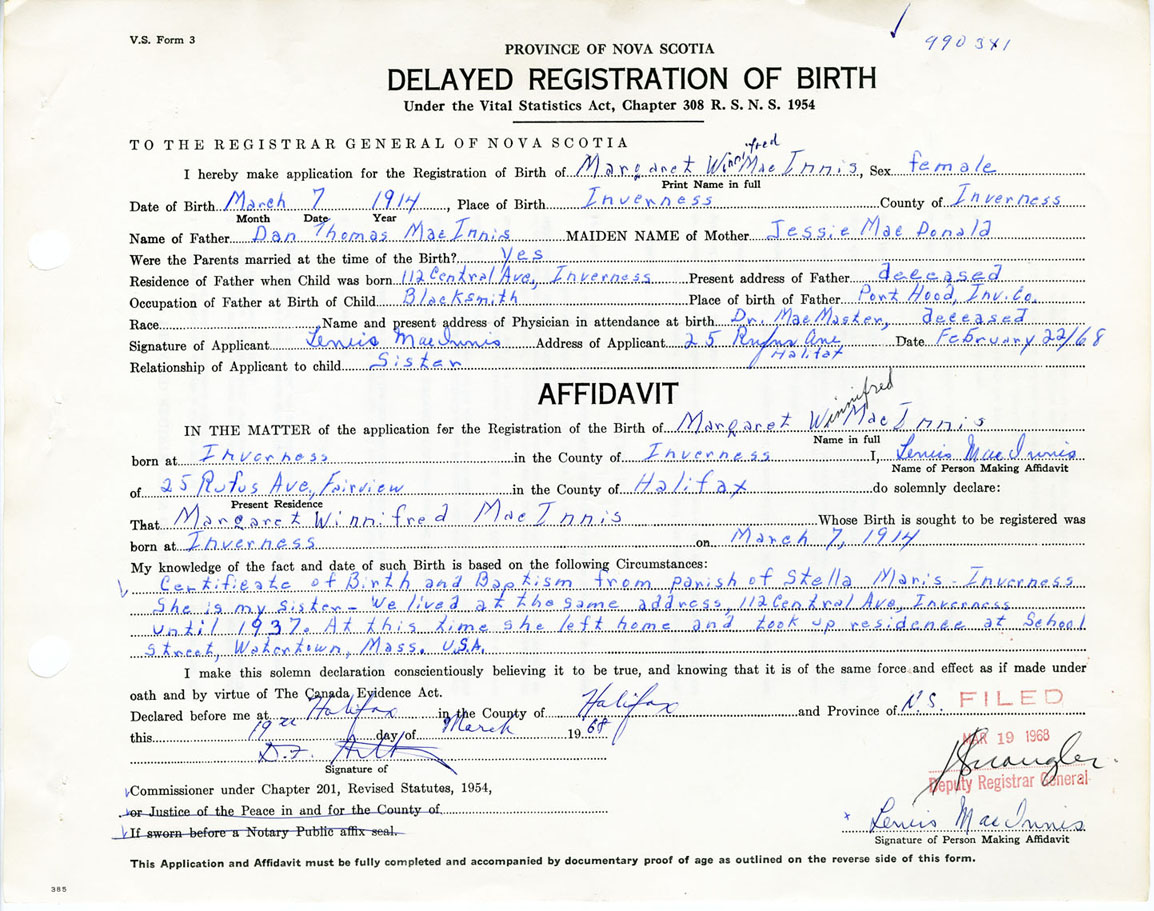 V.S. Form 3
990341
PROVINCE OF NOVA SCOTIA
DELAYED REGISTRATION OF BIRTH
Under the Vital Statistics Act, Chapter 308 R. S. N. S. 1954
TO THE REGISTRAR GENERAL OF NOVA SCOTIA
I hereby make application for the Registration of Birth of Margaret Winnifred MacInnis, Sex female
Print Name in full
Date of Birth March 7 1914, Place of Birth Inverness County of Inverness
Month Date Year
Name of Father Dan Thomas MacInnis MAIDEN NAME of Mother Jessie MacDonald
Were the Parents married at the time of the Birth? Yes
Residence of Father when Child was born 112 Central Ave, Inverness Present address of Father deceased
Occupation of Father at Birth of Child Blacksmith Place of birth of Father Port Hood, Inv. Co.
Race Name and present address of Physician in attendance at birth Dr. MacMaster, deceased
Signature of Applicant MacInnis Address of Applicant 25 Rufus Ave, Halifax Date February 22/68
Relationship of Applicant to child Sister
AFFIDAVIT
IN THE MATTER of the application for the Registration of the Birth of Margaret Winnifred MacInnis
Name in full
born at Inverness in the County of Inverness I, MacInnis
Name of Person Making Affidavit
of 25 Rufus Ave, Fairview in the County of Halifax do solemnly declare:
Present Residence
That Margaret Winnifred MacInnis Whose Birth is sought to be registered was
born at Inverness on March 7, 1914
My knowledge of the fact and date of such Birth is based on the following Circumstances:
Certificate of Birth and Baptism from parish of Stella Maris - Inverness
She is my sister - We lived at the same address, 112 Central Ave, Inverness
until 1937. At this time she left home and took up residence at School
Street, Watertown, Mass. U.S.A.
I make this solemn declaration conscientiously believing it to be true, and knowing that it is of the same force and effect as if made under
oath and by virtue of The Canada Evidence Act.
Declared before me at Halifax in the County of Halifax and Province of N.S. FILED
this 19 day of March 1968
MAR 19 1968
Signature of
Deputy Registrar General
Commissioner under Chapter 201, Revised Statutes, 1954,
or Justice of the Peace in and for the County of
If sworn before a Notary Public affix seal.
MacInnis
Signature of Person Making Affidavit
This Application and Affidavit must be fully completed and accompanied by documentary proof of age as outlined on the reverse side of this form.
385